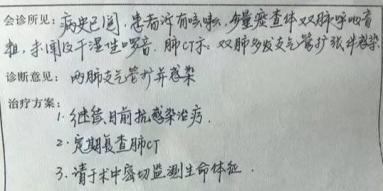 会诊所见：病史已阅，患者诉有咳嗽，少量痰查体双肺呼吸音
粗，未闻及干湿性啰音．肺CT示：双肺多发支气管扩张伴感染
诊断意见：两肺支气管扩张并感染
治疗方案：
1.继续目前抗感染治疗．
2.定期复查肺CT
3.请于术中密切监测生命体征．